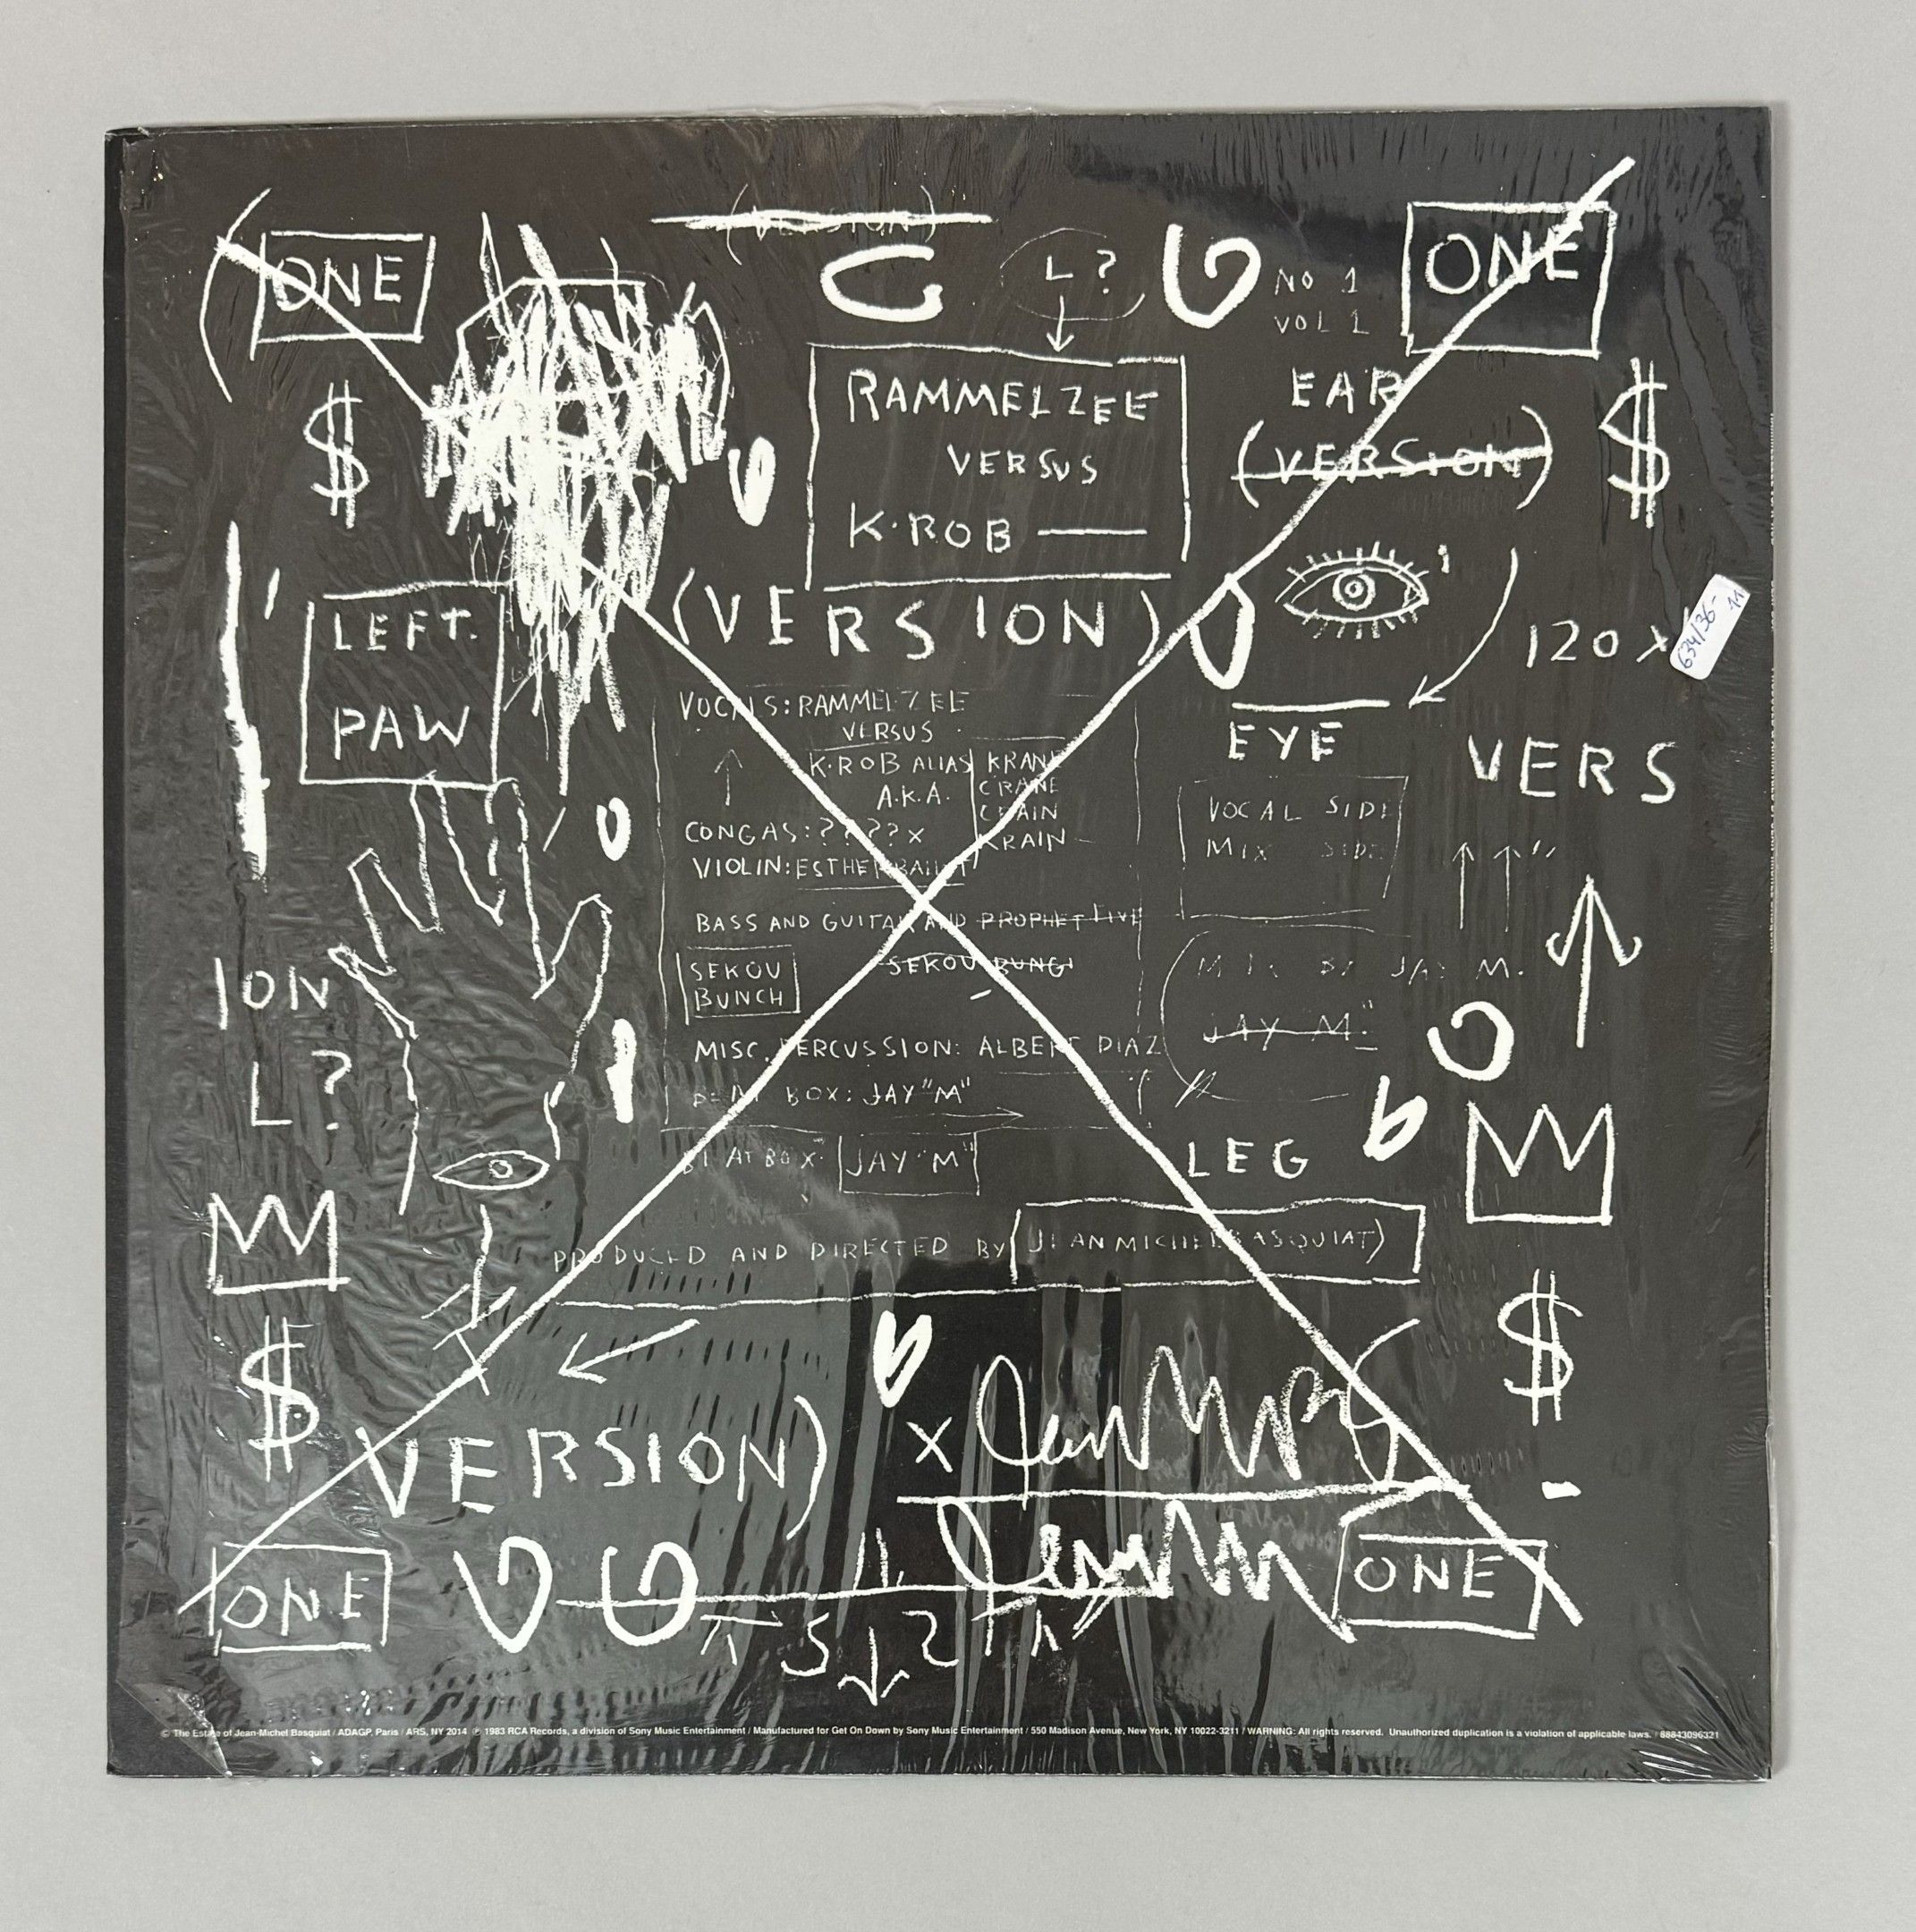 (VERSION)
ONE
L?
NO 1
VOL 1
ONE
$
RAMMELZEE
VERSUS
K·ROB
EAR
(VERSION)
$
(VERSION)
LEFT.
PAW
120 X
634/36-
EYE
VERS
VOCALS: RAMMELZEE
VERSUS
K·ROB ALIAS
A.K.A.
KRANE
CRANE
CRAIN
KRAIN
CONGAS: ???? X
VIOLIN: ESTHER
VOCAL SIDE
MIX SIDE
BASS AND GUITAR AND PROPHET FIVE
SEKOU
BUNCH
SEKOU BUNGI
ION
L?
MIX BY JAY M.
JAY "M."
MISC. PERCUSSION: ALBERT DIAZ
BEAT BOX: JAY "M"
BEAT BOX: JAY "M"
LEG
PRODUCED AND DIRECTED BY (JEAN MICHEL BASQUIAT)
$
$
VERSION)
X
ONE
ONE
© The Estate of Jean-Michel Basquiat / ADAGP, Paris / ARS, NY 2014 ℗ 1983 RCA Records, a division of Sony Music Entertainment / Manufactured for Get On Down by Sony Music Entertainment / 550 Madison Avenue, New York, NY 10022-3211 / WARNING: All rights reserved. Unauthorized duplication is a violation of applicable laws. / 88843096321